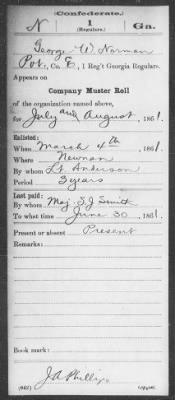 Confederate.
N 1 Ga.
(Regulars.)
George W. Norman
Pvt., Co. E, 1 Reg't Georgia Regulars.
Appears on
Company Muster Roll
of the organization named above,
for July and August, 1861.
Enlisted:
When March 4th, 1861.
Where Newnan
By whom Lt. Anderson
Period 3 years
Last paid:
By whom Maj. S J Smith
To what time June 30, 1861.
Present or absent Present
Remarks:
Book mark:
J A Phillips
Copyist.